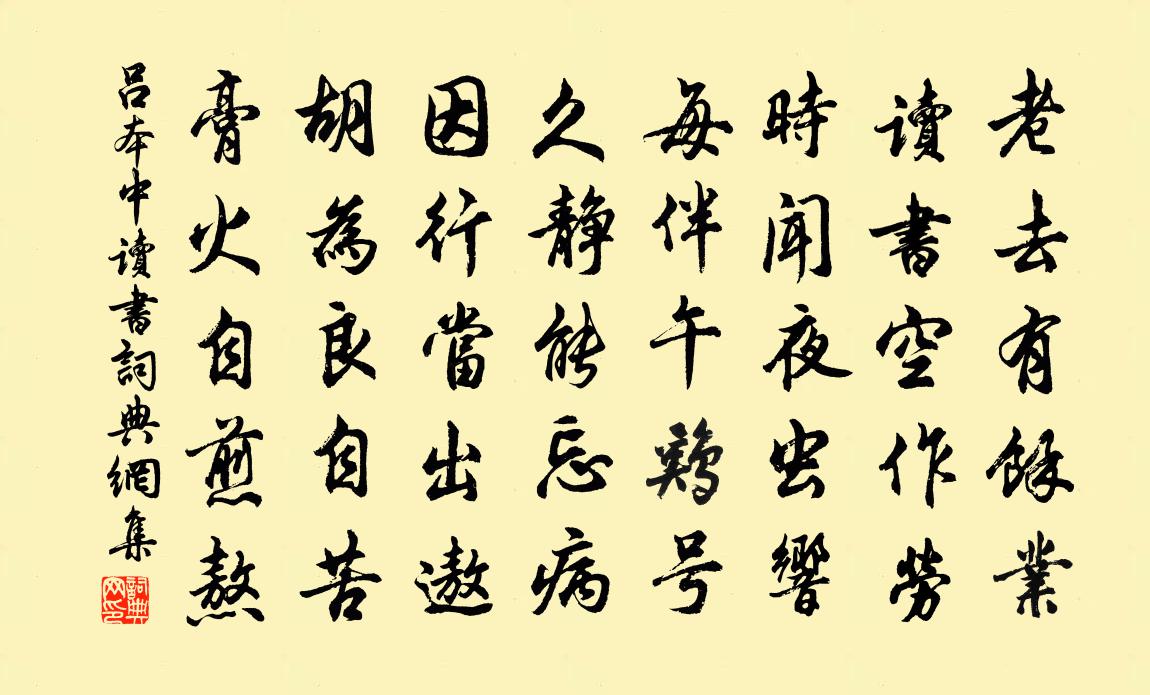 老去有餘業
讀書空作勞
時聞夜虫響
每伴午鷄号
久靜能忘病
因行當出遨
胡為良自苦
膏火自煎熬
吕本中讀書詞典網集
詞典網印